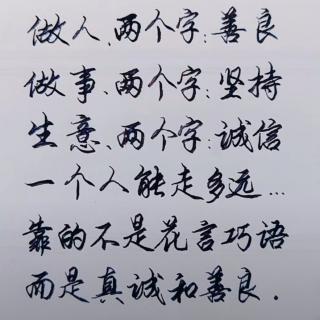 做人、两个字：善良
做事、两个字：坚持
生意、两个字：诚信
一个人能走多远…
靠的不是花言巧语
而是真诚和善良．